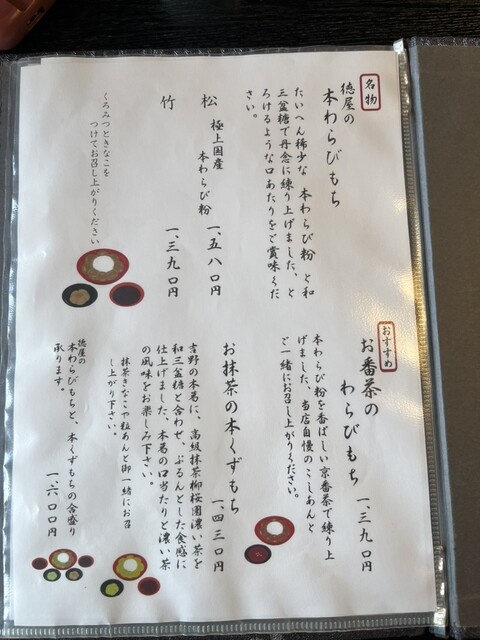 名物
徳屋の
本わらびもち
たいへん稀少な 本わらび粉 と和
三盆糖で丹念に練り上げました、と
ろけるような口あたりをご賞味くだ
さい。
松 極上国産
本わらび粉 一、五八〇円
竹 一、三九〇円
くろみつときなこを
つけてお召し上がりください
おすすめ
お番茶の
わらびもち 一、三九〇円
本わらび粉を香ばしい京番茶で練り上
げました、当店自慢のこしあんと
ご一緒にお召し上がりください。
お抹茶の本くずもち
一、四三〇円
吉野の本葛に、高級抹茶柳桜園濃い茶を
和三盆糖と合わせ、ぷるんとした食感に
仕上げました、本葛の口当たりと濃い茶
の風味をお楽しみ下さい。
抹茶きなこや粒あんと御一緒にお召
し上がり下さい。
徳屋の
本わらびもちと、本くずもちの合盛り
承ります。 一、六〇〇円